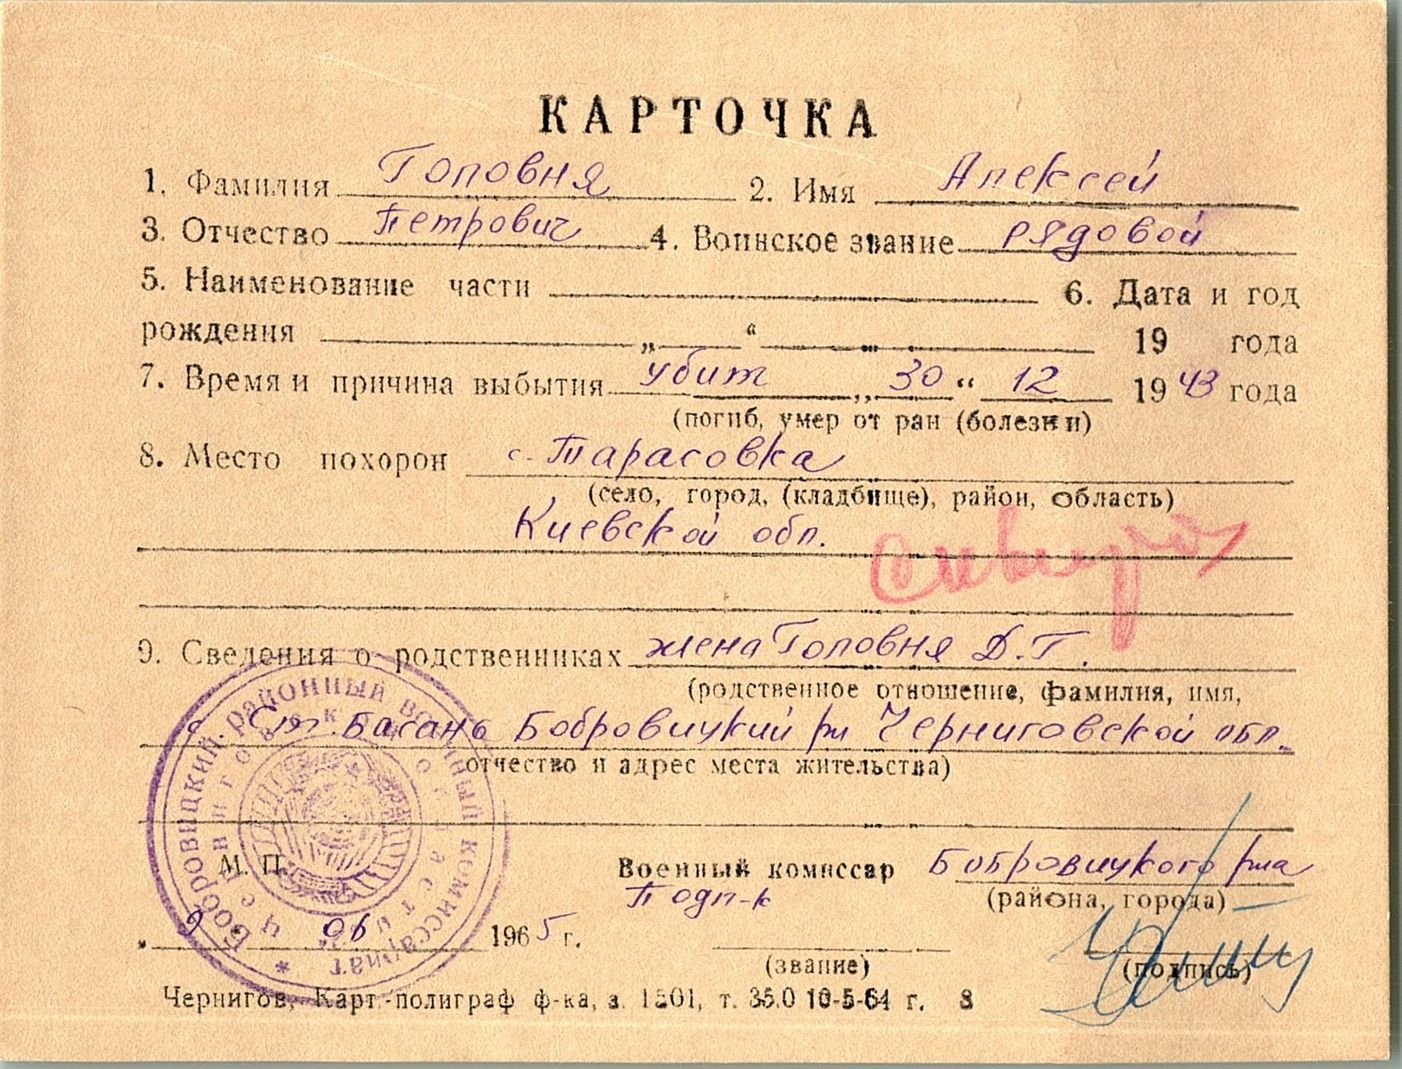 КАРТОЧКА
1. Фамилия Головня 2. Имя Алексей
3. Отчество Петрович 4. Воинское звание рядовой
5. Наименование части 6. Дата и год
рождения „ “ 19 года
7. Время и причина выбытия убит „ 30 “ 12 1943 года
(погиб, умер от ран (болезни)
8. Место похорон с. Тарасовка
(село, город, (кладбище), район, область)
Киевской обл.
9. Сведения о родственниках жена Головня Д.Г.
(родственное отношение, фамилия, имя,
с. Ст. Басань Бобровицкий рн Черниговской обл.
отчество и адрес места жительства)
М. П. Военный комиссар Бобровицкого р-на
Подп-к (района, города)
„ 9 06 1965 г.
(звание) (подпись)
Чернигов, Карт.-полиграф ф-ка, з. 1501, т. 35.0 10-5-64 г. 8
* Бобровицкий районный военный комиссариат
Черниговской области